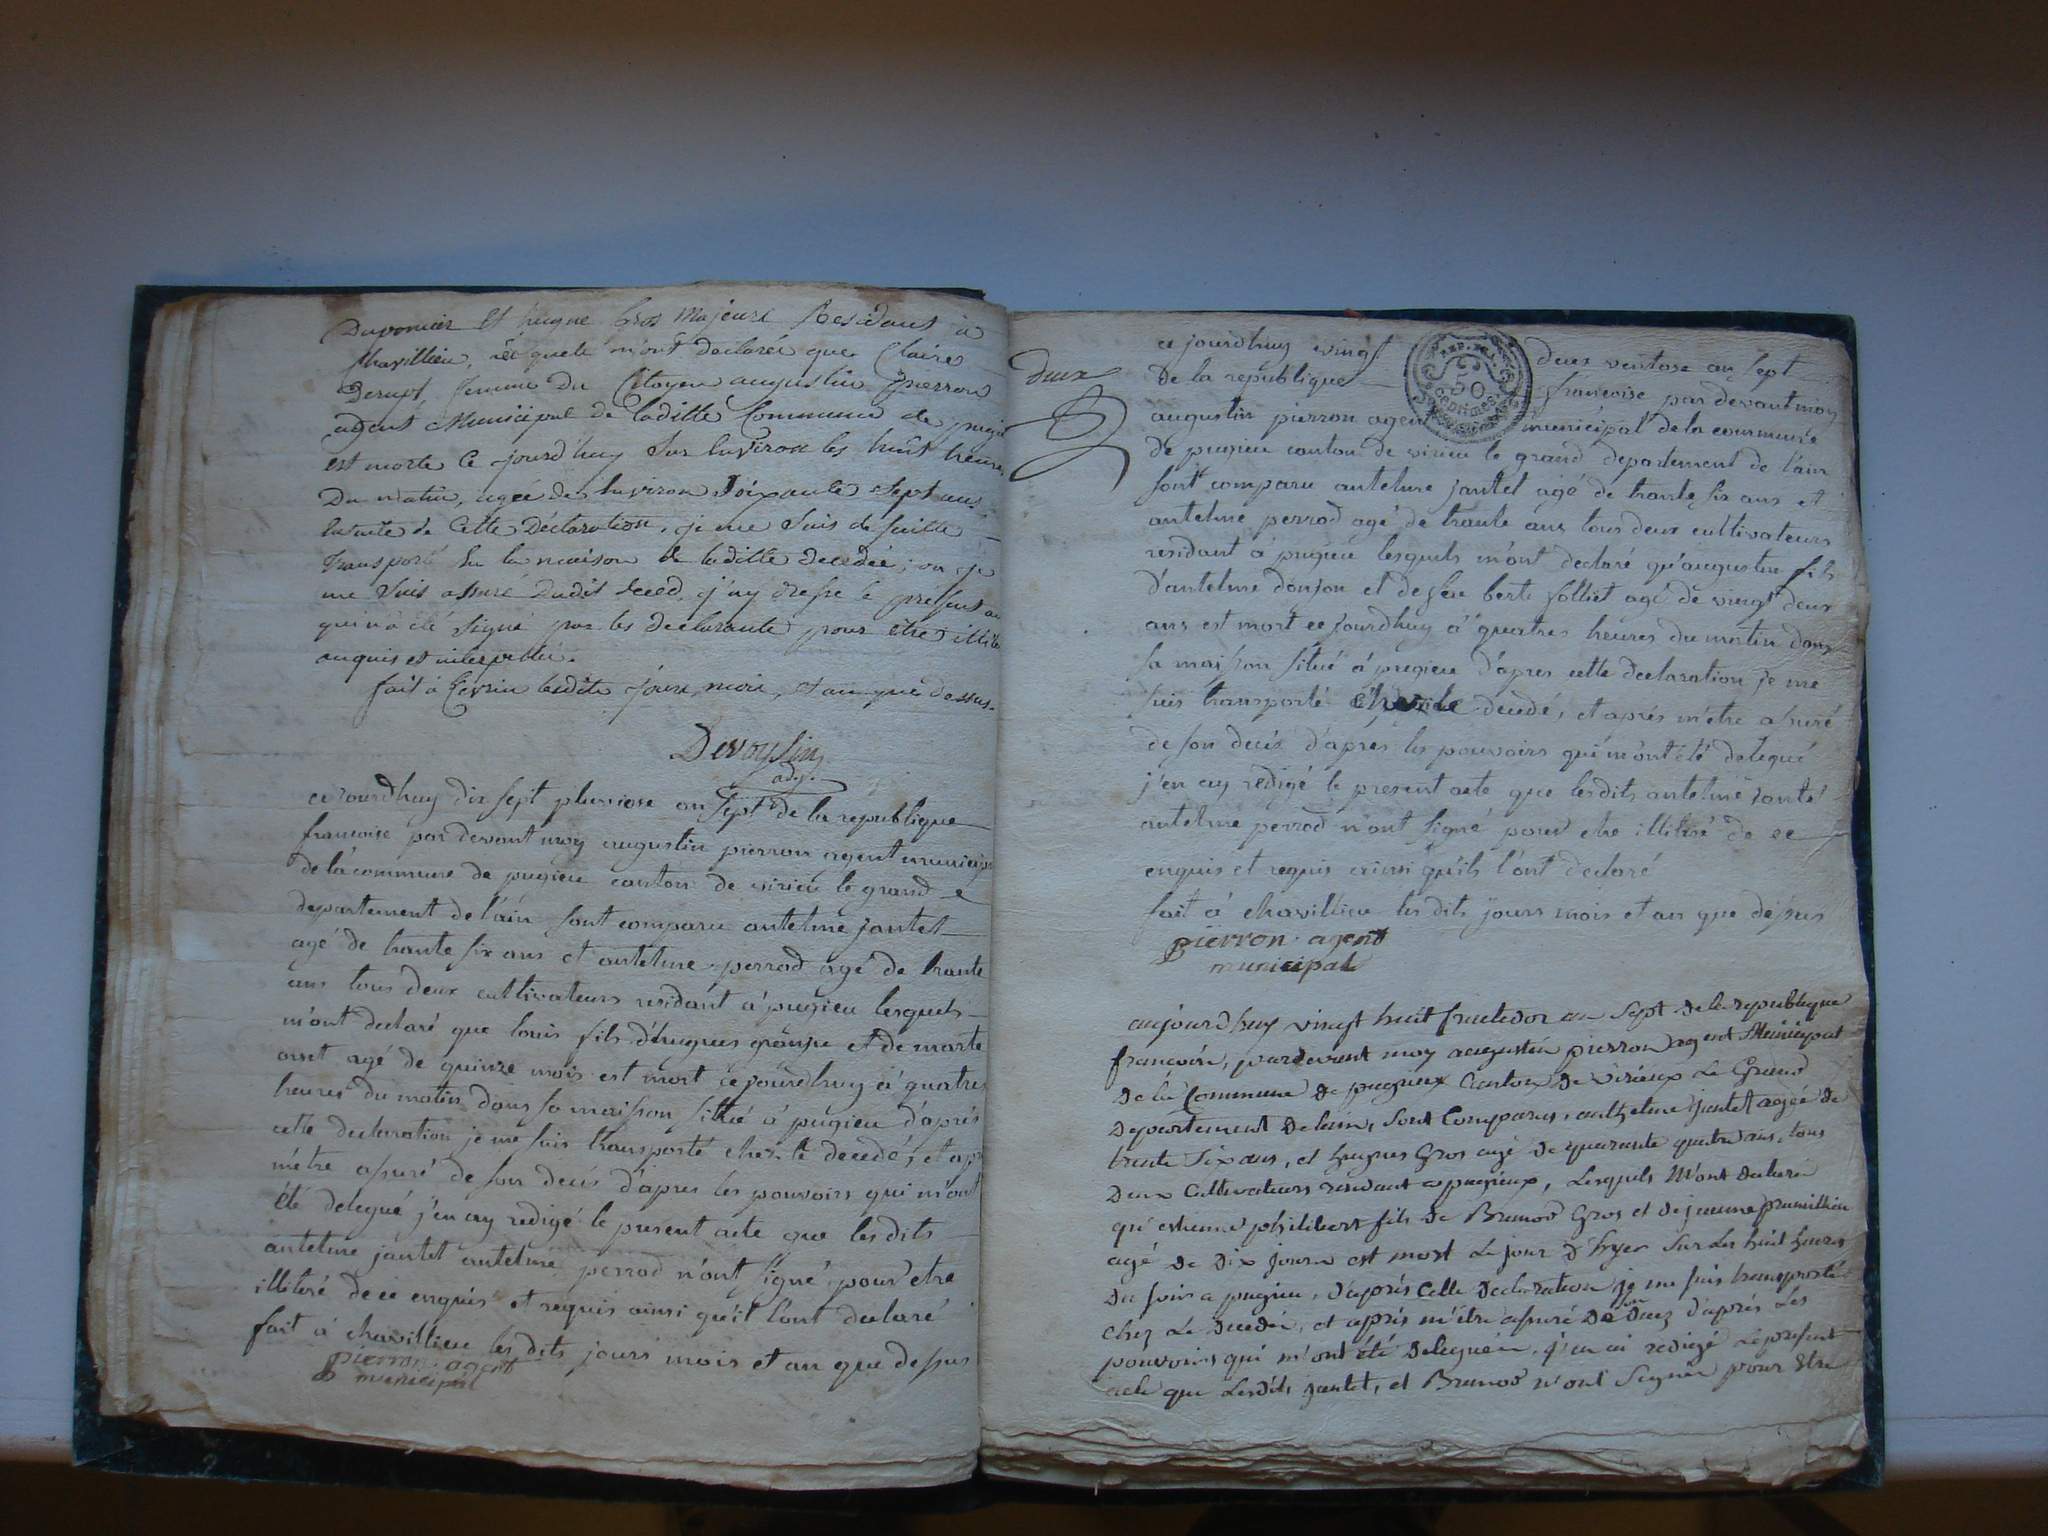 Duponier et hugue Gros Majeurs Residants à
Chavillieu, lesquels m'ont declarée que Claire
Derupt, femme Du Citoyen augustin pierron
agent Municipal de laditte Commune de pugie
est morte Ce jourd'huy Sur Lenviron les huit heures
Du matin, agée de Lenviron Soixante Sept ans
ensuite de Cette Déclaration, je me Suis de Suitte
transporté En la maison de laditte decedée, ou je
me Suis assuré dudit deced, j'ay dressé le present ac
qui n'a été Signé par les declarants pour être illité
enquis et interpellé.
fait à Ceyrin lesdits jours, mois, et an que dessus.
Devoysin
adj.
ce jourdhuy dix sept pluviose an sept de la republique
francoise par devant moy augustin pierron agent municip
de la commune de pugieu canton de virieu le grand
departement de l'ain sont comparu antelme jantet
agé de trante six ans et antelme perrod agé de trante
ans tous deux cultivateurs residant a pugieu lesquels
m'ont declaré que louis fils d'hugues et de marte
agé de quinze mois est mort ce jourdhuy a quatres
heures du matin dans sa maison sittué a pugieu d'aprés
cette declaration je me suis transporté chez le decedé, et apr
m'etre assuré de son decés d'apres les pouvoirs qui m'ont
été delegué j'en ay redigé le present acte que les dits
antelme jantet antelme perrod n'ont signé pour etre
illiteré de ce enquis et requis ainsi qu'il l'ont declaré
fait a chavillieu les dits jours mois et an que dessus
pierron agent
municipal
deux
ce jourdhuy vingt deux ventose an sept
De la republique francoise par devant moy
augustin pierron agent municipal de la commune
de pugieu canton de virieu le grand departement de l'ain
sont comparu antelme jantet agé de trante six ans et
antelme perrod agé de trante ans tous deux cultivateurs
residant a pugieu lesquels m'ont declaré qu'augustin fils
d'antelme donjon et de feu berte folliet agé de vingt deux
ans est mort ce jourdhuy a quatres heures du matin dans
sa maison situé a pugieu d'apres cette declaration je me
suis transporté chez le decedé, et aprés m'etre assuré
de son decés d'apres les pouvoirs qui m'ont été delegué
j'en ay redigé le present acte que lesdits antelme jantet
antelme perrod n'ont signé pour etre illiteré de ce
enquis et requis ainsi qu'ils l'ont declaré
fait a chavillieu les dits jours mois et an que dessus
pierron agent
municipal
REP. FRA.
50
centimes
aujourdhuy vingt huit fructidor an Sept de la republique
francoise, pardevant moy augustin pierron agent Municipal
De la Commune de pugieux Canton De virieux Le Grand
Departement De lain, Sont Comparus, anthelme jantet agée de
trente Six ans, et hugues Gros agé De quarante quatre ans, tous
Deux Cultivateurs residant a pugieux, Lesquels M'ont declaré
qu'estienne philibert fils De Brunod Gros et de jeanne prunillieu
agé de Dix jours est mort Le jour D'hyer Sur Les huit heures
Du soir a pugieu, D'aprés Cette Declaration je me suis transporté
Chez Le Decedé, et aprés m'etre assuré De son Decez d'aprés Les
pouvoirs qui m'ont été Deleguée, j'en ai redigé Le present
acte que Lesdits jantet, et Brunod n'ont Signée pour Etre